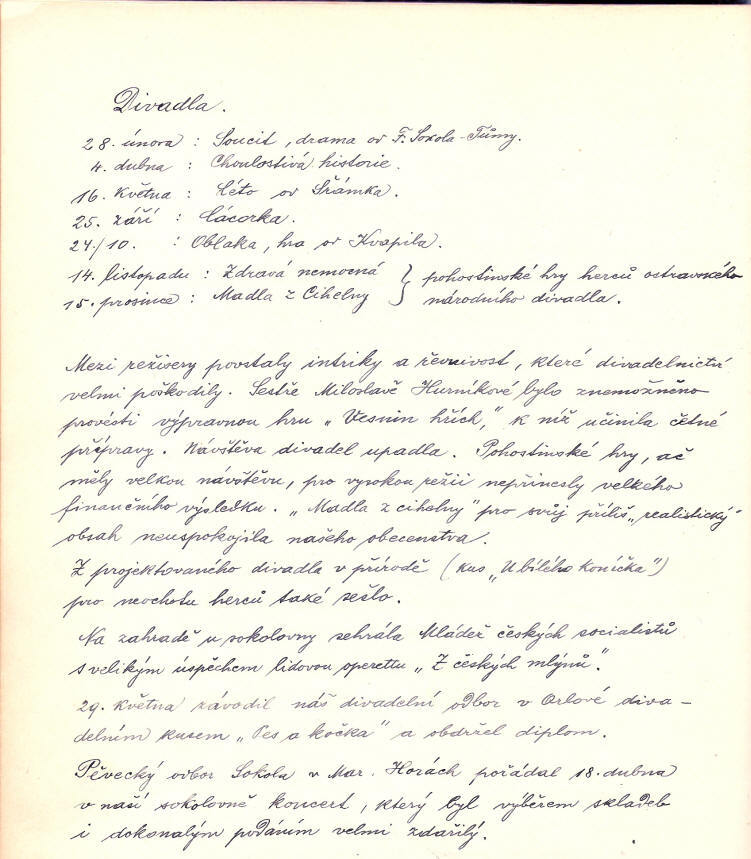 Divadla.
28. února : Soucit, drama od F. Sokola-Tůmy.
4. dubna : Choulostivá historie.
16. května : Léto od Šrámka.
25. září : Cácorka.
24/10. : Oblaka, hra od Kvapila.
14. listopadu : Zdravá nemocná } pohostinské hry herců ostravského
15. prosince : Madla z Cihelny } národního divadla.
Mezi režisery povstaly intriky a řevnivost, které divadelnictví
velmi poškodily. Sestře Miloslavě Hurníkové bylo znemožněno
provésti výpravnou hru „Vesnin hřích," k níž učinila četné
přípravy. Návštěva divadel upadla. Pohostinské hry, ač
měly velkou návštěvu, pro vysokou režii nepřinesly velkého
finančního výsledku. „Madla z cihelny" pro svůj příliš „realistický"
obsah neuspokojila našeho obecenstva.
Z projektovaného divadla v přírodě (kus „U bílého koníčka")
pro neochotu herců také sešlo.
Na zahradě u sokolovny sehrála Mládež českých socialistů
s velikým úspěchem lidovou operettu „Z českých mlýnů".
29. května závodil náš divadelní odbor v Orlové diva-
delním kusem „Pes a kočka" a obdržel diplom.
Pěvecký odbor Sokola v Mar. Horách pořádal 18. dubna
v naší sokolovně koncert, který byl výběrem skladeb
i dokonalým podáním velmi zdařilý.